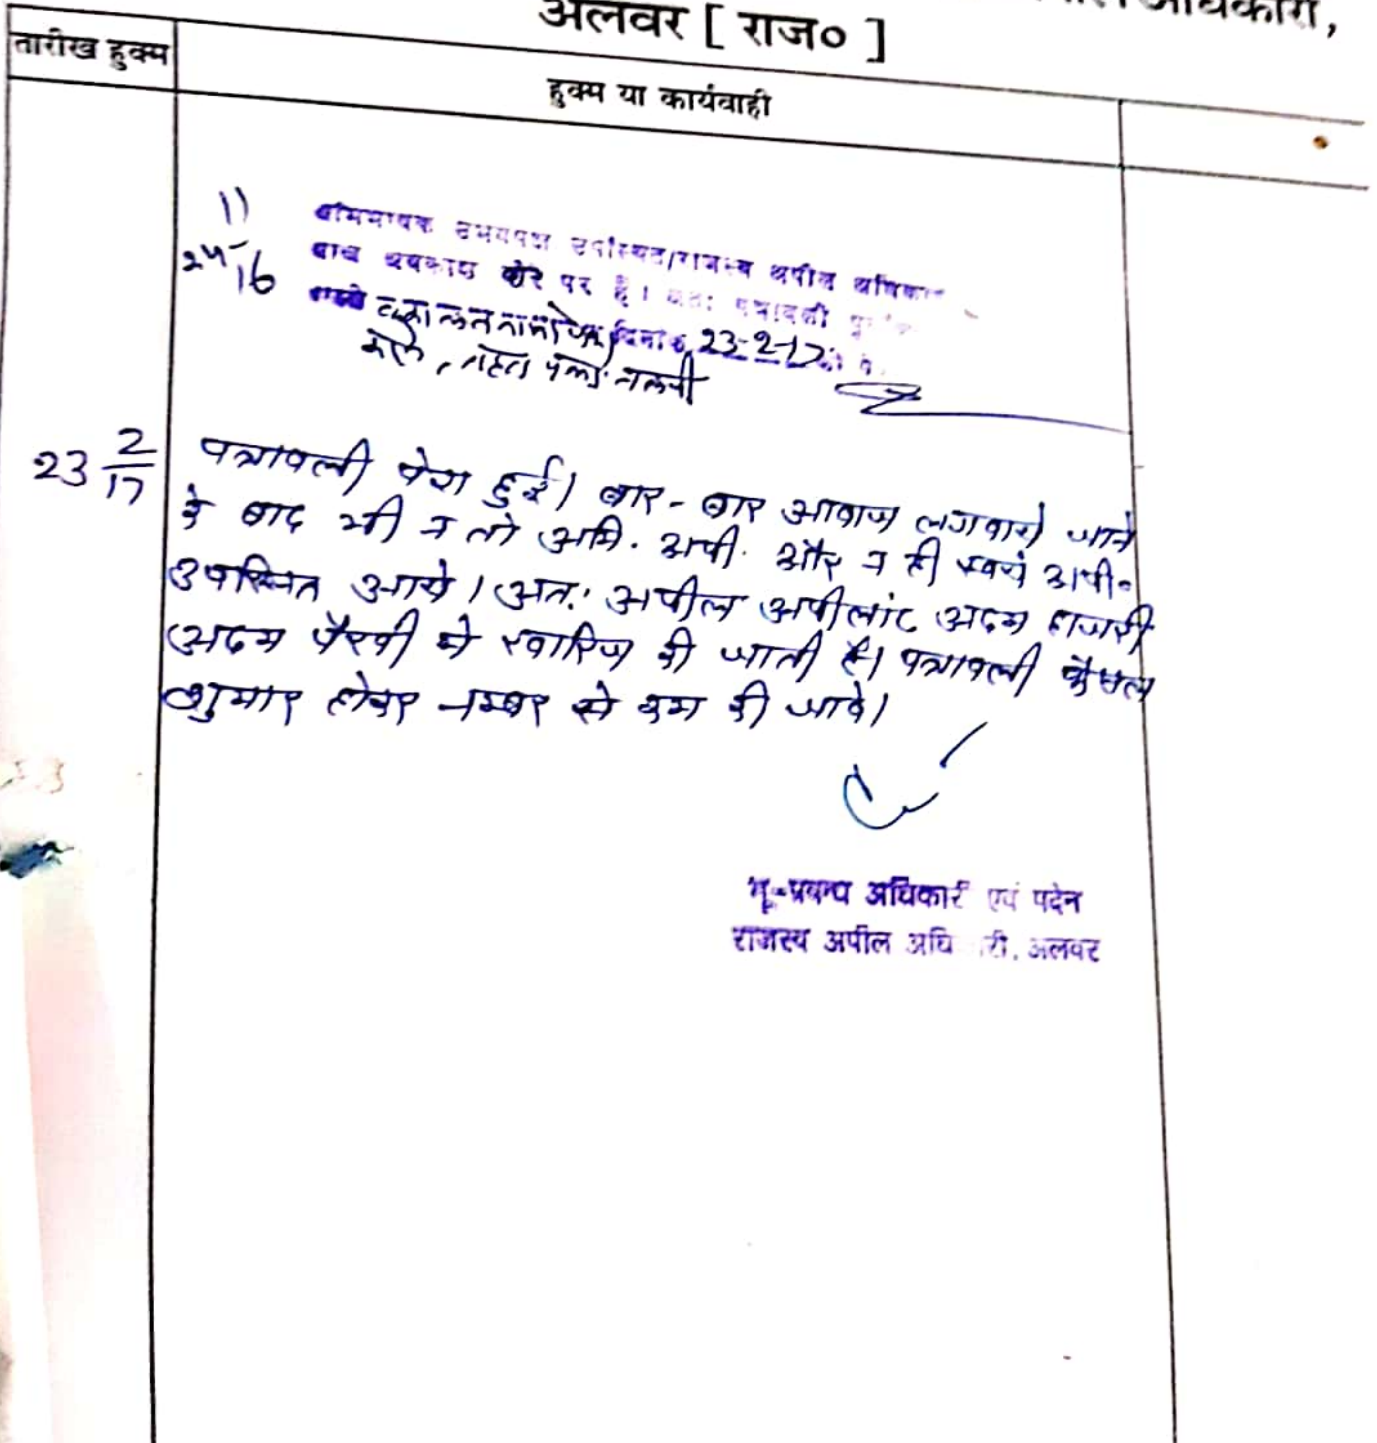 अधिकारी,
अलवर [ राज० ]
तारीख हुक्म
हुक्म या कार्यवाही
11
16
अभिभाषक उभयपक्ष उपस्थित/राजस्व अपील अधिकार
अवकाश पर है। अतः पत्रावली
दिनांक 23-2-17 को
तलबी
23 2/17
पत्रावली पेश हुई। बार-बार आवाज लगवाये जाने
के बाद भी न तो अभि. अपी. और न ही स्वयं अपी॰
उपस्थित आये। अतः अपील अपीलांट अदम हाजरी
अदम पैरवी मे खारिज की जाती है। पत्रावली फैसल
शुमार होकर नम्बर से कम की जावे।
भू-प्रबन्ध अधिकारी एवं पदेन
राजस्व अपील अधि री, अलवर